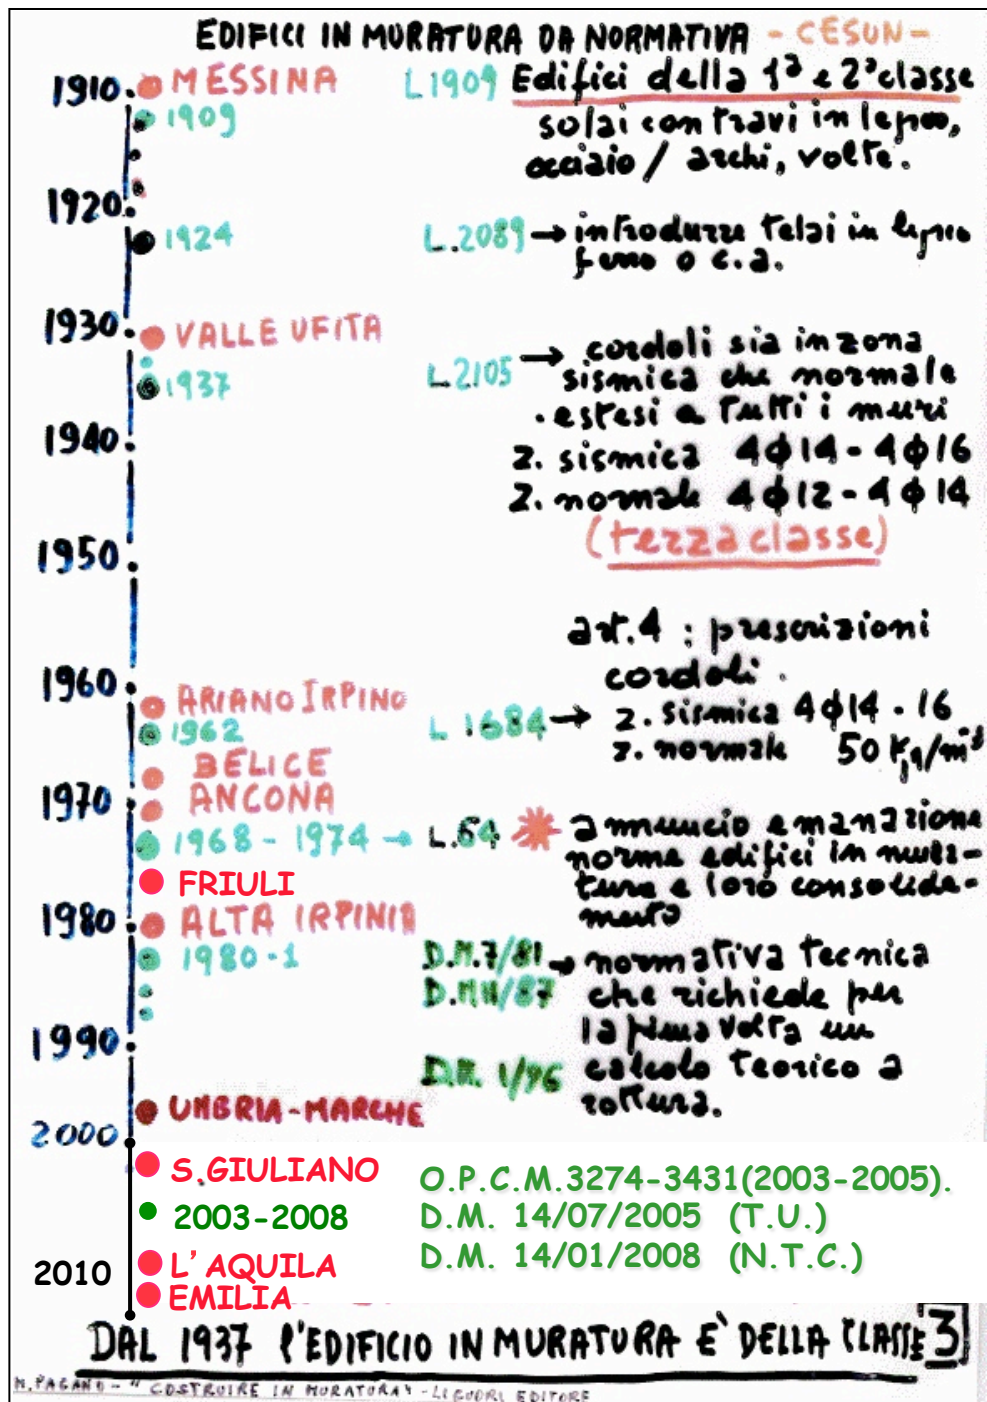 EDIFICI IN MURATURA DA NORMATIVA - CESUN -
1910 MESSINA L1909 Edifici della 1ª e 2ª classe
1909 solai con travi in legno,
acciaio / archi, volte.
1920
1924 L.2089 → introdurre telai in legno
ferro o c.a.
1930 VALLE UFITA
1937 L.2105 → cordoli sia in zona
sismica che normale
· estesi a tutti i muri
1940 z. sismica 4ϕ14 - 4ϕ16
z. normale 4ϕ12 - 4ϕ14
(terza classe)
1950
art.4 : prescrizioni
cordoli.
1960 ARIANO IRPINO
1962 L 1684 → z. sismica 4ϕ14 - 16
z. normale 50 Kg/m³
BELICE
1970 ANCONA
1968 - 1974 → L.64 annuncio emanazione
norme edifici in mura-
tura e loro consolida-
mento
FRIULI
1980 ALTA IRPINIA
1980-1 D.M.7/81 → normativa tecnica
D.M11/87 che richiede per
la prima volta un
1990 calcolo teorico a
D.M. 1/96 rottura.
UMBRIA-MARCHE
2000
S.GIULIANO O.P.C.M.3274-3431(2003-2005).
2003-2008 D.M. 14/07/2005 (T.U.)
L'AQUILA D.M. 14/01/2008 (N.T.C.)
2010
EMILIA
DAL 1937 l'EDIFICIO IN MURATURA E' DELLA CLASSE 3
M.PAGANO - "COSTRUIRE IN MURATURA" - LIGUORI EDITORE